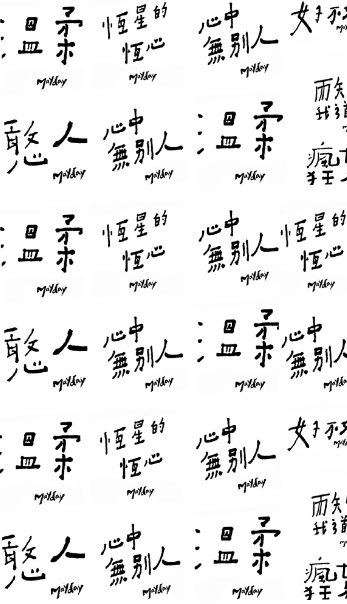 溫柔
mayday
恆星的
恆心
mayday
心中
無別人
mayday
憨人
mayday
心中
無別人
mayday
溫柔
mayday
而
我
瘋
狂
溫柔
mayday
恆星的
恆心
mayday
心中
無別人
mayday
恆星的
恆心
mayday
憨人
mayday
心中
無別人
mayday
溫柔
mayday
心中
無別人
mayday
溫柔
mayday
恆星的
恆心
mayday
心中
無別人
mayday
憨人
mayday
心中
無別人
mayday
溫柔
mayday
而
我
瘋
狂